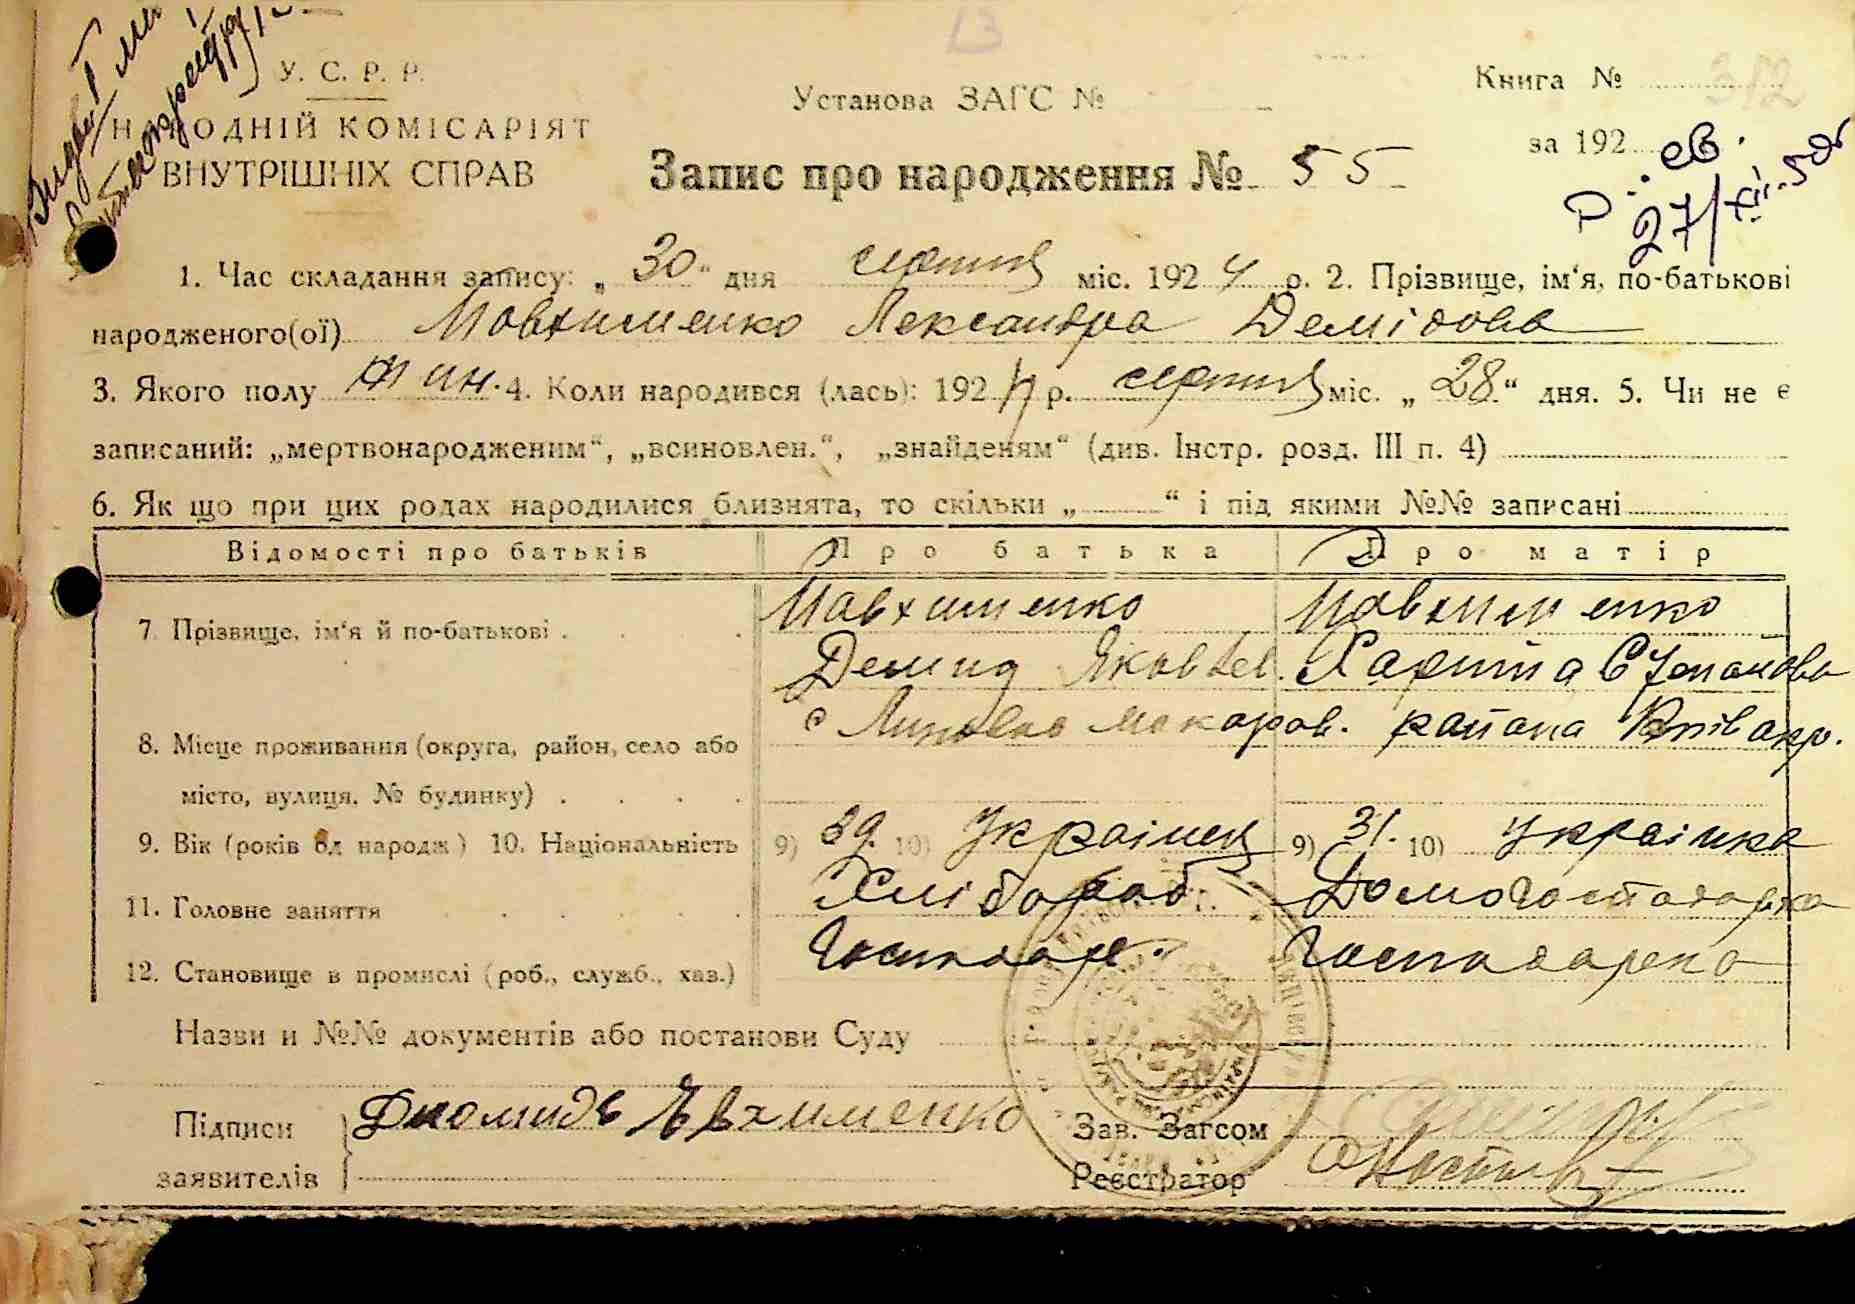 13
У. С. Р. Р.
НАРОДНІЙ КОМІСАРІЯТ
ВНУТРІШНІХ СПРАВ
Установа ЗАГС №
Книга № 312
за 192
Запис про народження № 55
27/XII-50
1. Час складання запису: „ 30 " дня серпня міс. 1924 р. 2. Прізвище, ім'я, по-батькові
народженого(ої) Явхименко Лександра Демідова
3. Якого полу жін. 4. Коли народився (лась): 1924 р. серпня міс. „ 28 " дня. 5. Чи не є
записаний: „мертвонародженим", „всиновлен.", „знайденям" (див. Інстр. розд. III п. 4)
6. Як що при цих родах народилися близнята, то скільки „ " і під якими №№ записані
Відомості про батьків Про батька Про матір
7. Прізвище, ім'я й по-батькові . Явхименко Явхименко
Демид Яковлев. Харитіа Степанова
8. Місце проживання (округа, район, село або с Липовко Макаров. района Київ окр.
місто, вулиця, № будинку) .
9. Вік (років од народж) 10. Національність 9) 39. 10) Українец 9) 31. 10) Українка
11. Головне заняття Хлібороб Домогосподарка
12. Становище в промислі (роб., служб., хаз.) Господар. Господарка
Назви и №№ документів або постанови Суду
Підписи Диомидъ Явхименко Зав. Загсом
заявителів Реєстратор